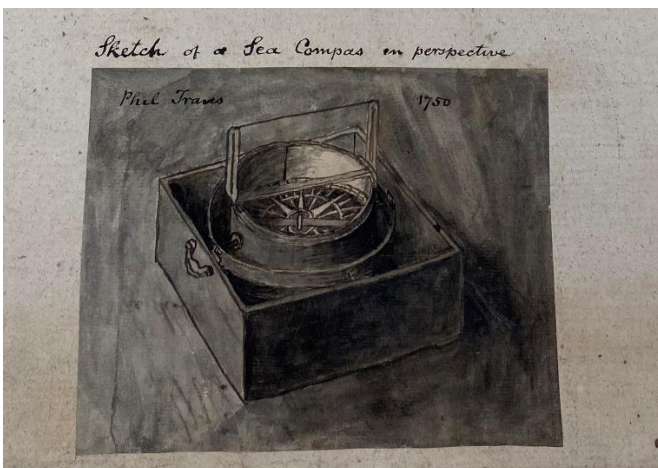 Sketch of a Sea Compas in perspective
Phil Trans 1750